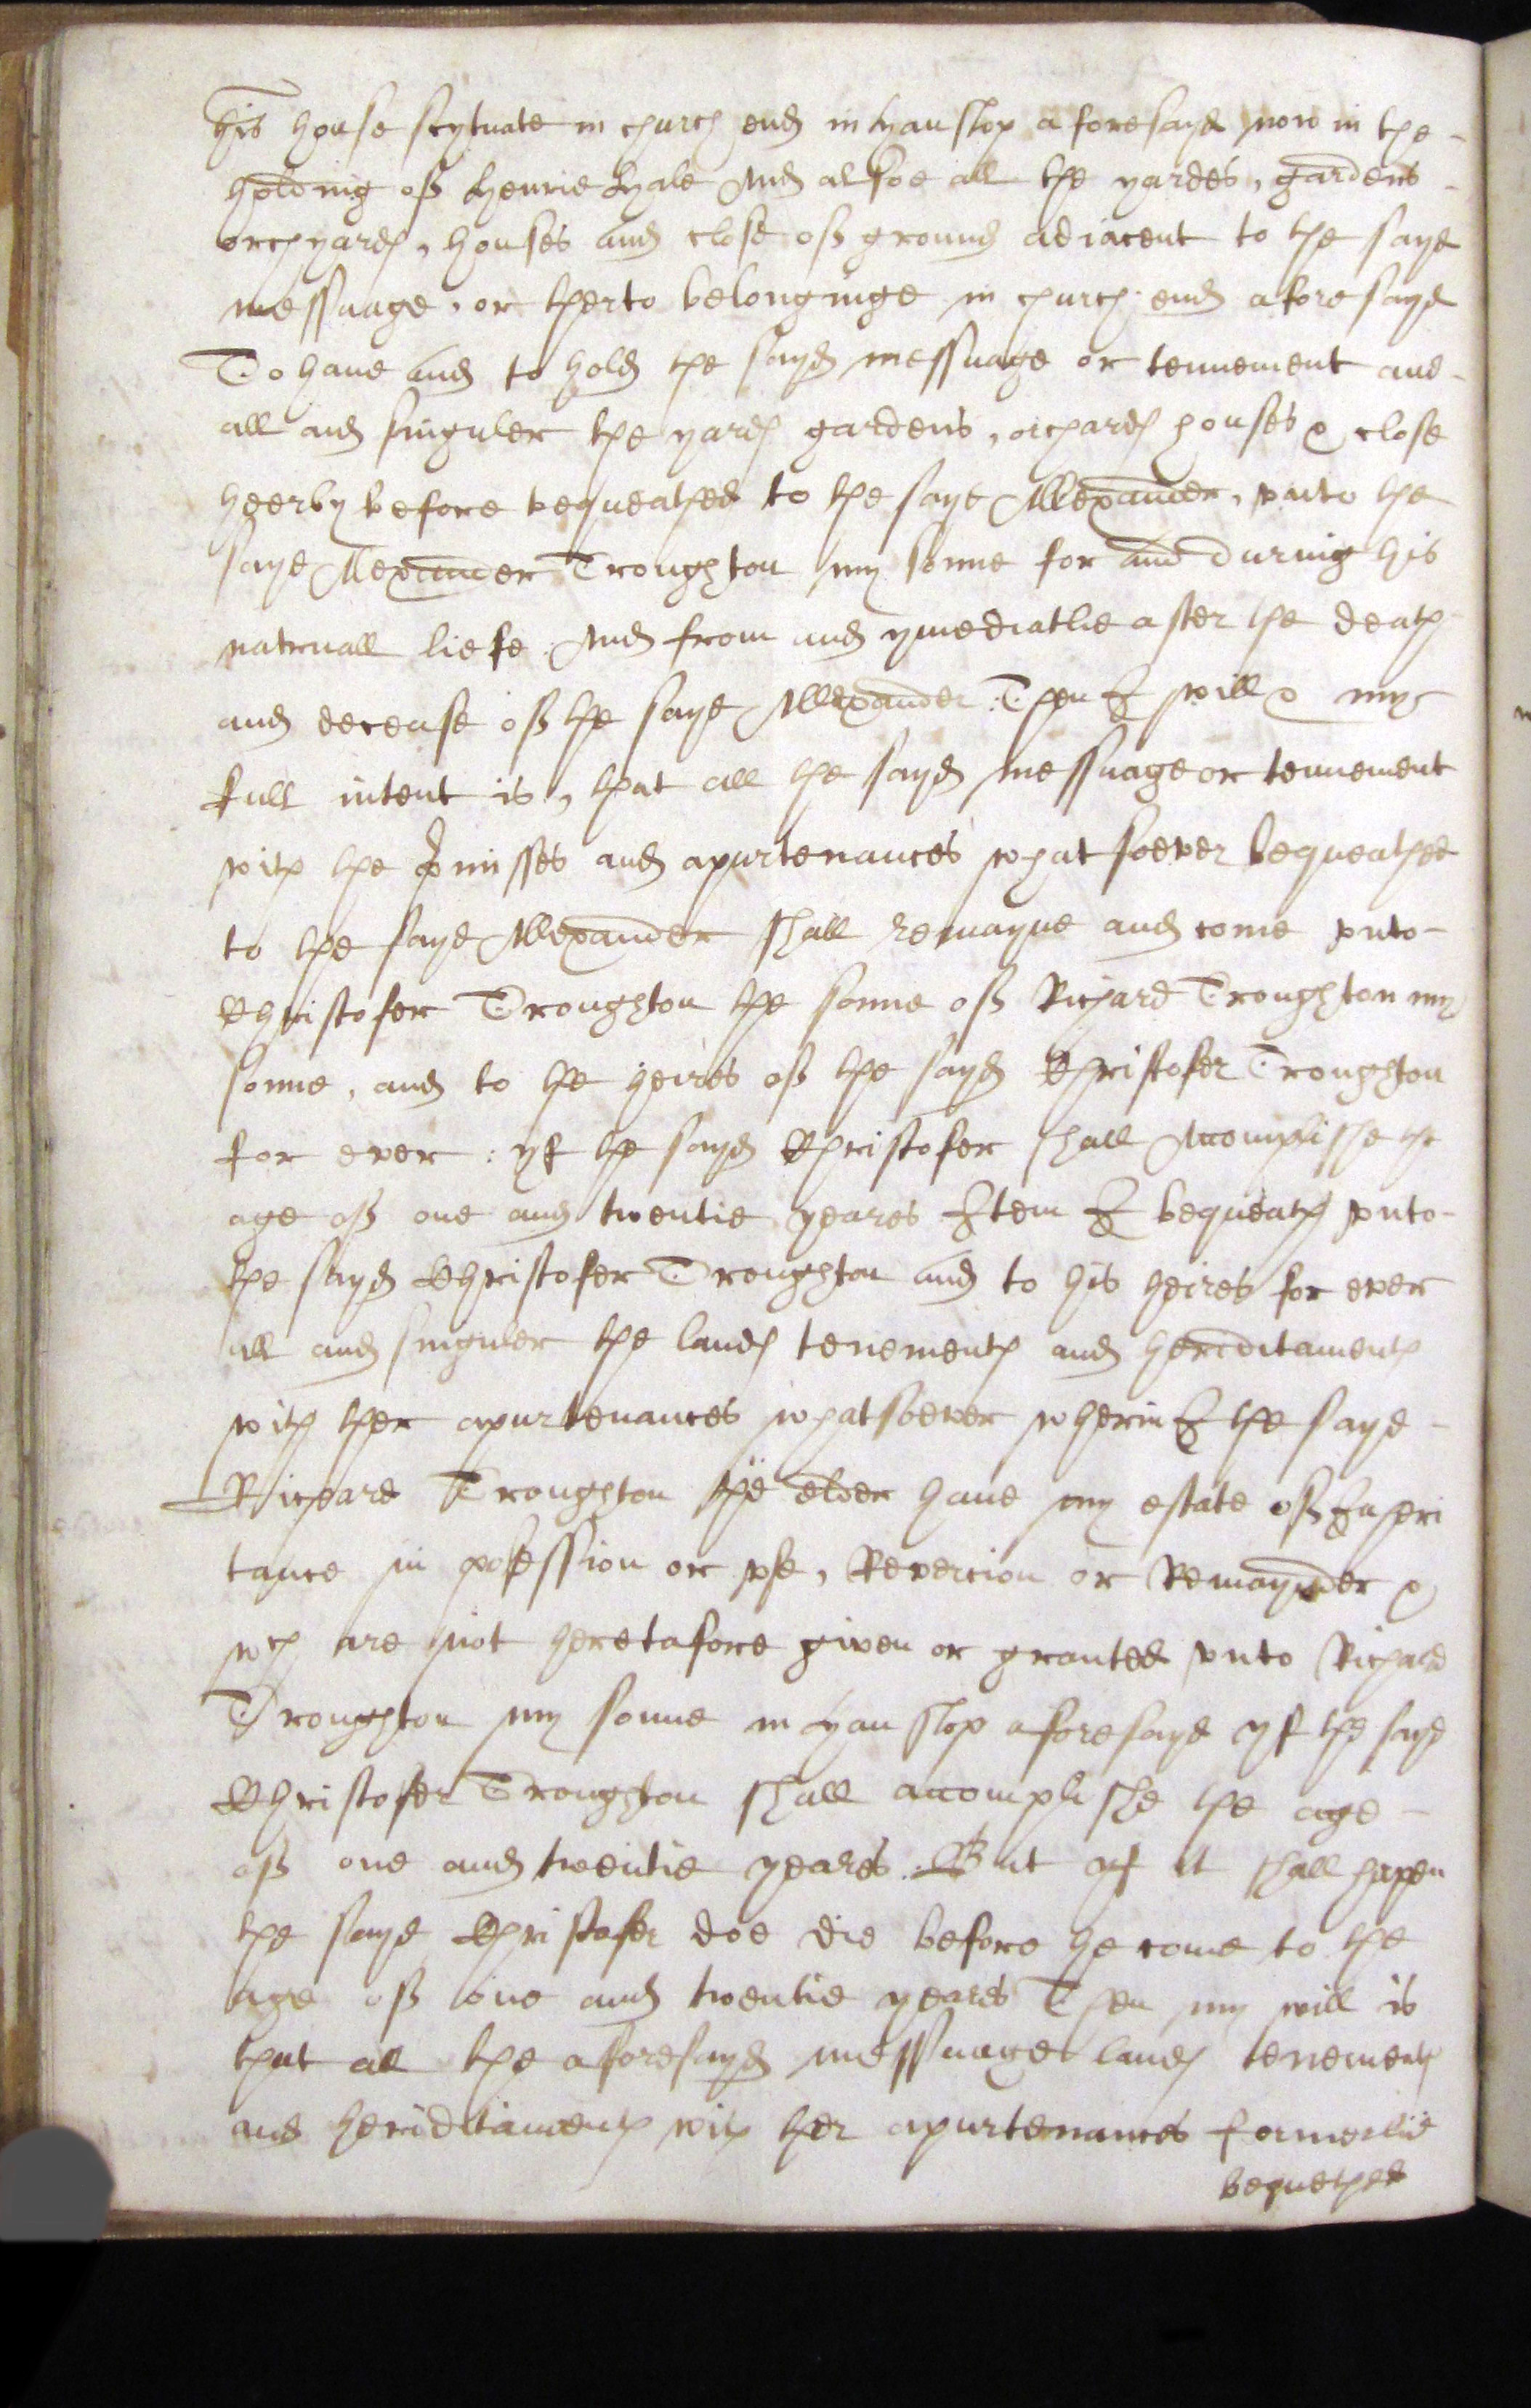 his house scytuate in church end in Hanslop aforesayd now in the -
holding off Henrie Hale And alsoe all the yardes, gardens -
orchyardes, houses and close off ground adiacent to the sayd
messuage, or therto belonginge in church end aforesayd
To haue and to hold the sayd messuage or tennement and -
all and singuler the yardes gardens, orchardes houses & close
heerby before bequeathed to the sayd Allexander, vnto the
sayd Allexander Troughton my sonne for and during his
natruall liefe. And from and ymediatlie after the death
and decease off the sayd Allexander. Then I will & my
full intent is, that all the sayd messuage or tennement
with the p̄misses and apurtenances whatsoever bequeathed
to the sayd Allexander shall remayne and come vnto -
Christofer Troughton the sonne off Richard Troughton my
sonne, and to the heires off the sayd Christofer Troughton
for ever: yf the sayd Christofer shall Accomplishe the
age off one and twentie yeares Item I bequeath vnto -
the sayd Christofer Troughton and to his heires for ever
all and singuler the landes tenementes and heriditamentes
with ther apurtenances whatsoever wherin I the sayd -
Richard Troughton the elder haue my estate off Inheri
tance in possession or vse, Revercion or Remaynder &
wch are not heretafore given or granted vnto Richard
Troughton my sonne in Hanslop aforesayd yf the sayd
Christofer Troughton shall accomplishe the age -
off one and twentie yeares. But yf it shall hapen
the sayd Christofer doe die before he come to the
age off one and twentie yeares Then my will is
that all the aforesayd messuage landes tenementes
and heriditamentes with ther apurtenances formerlie
bequethed